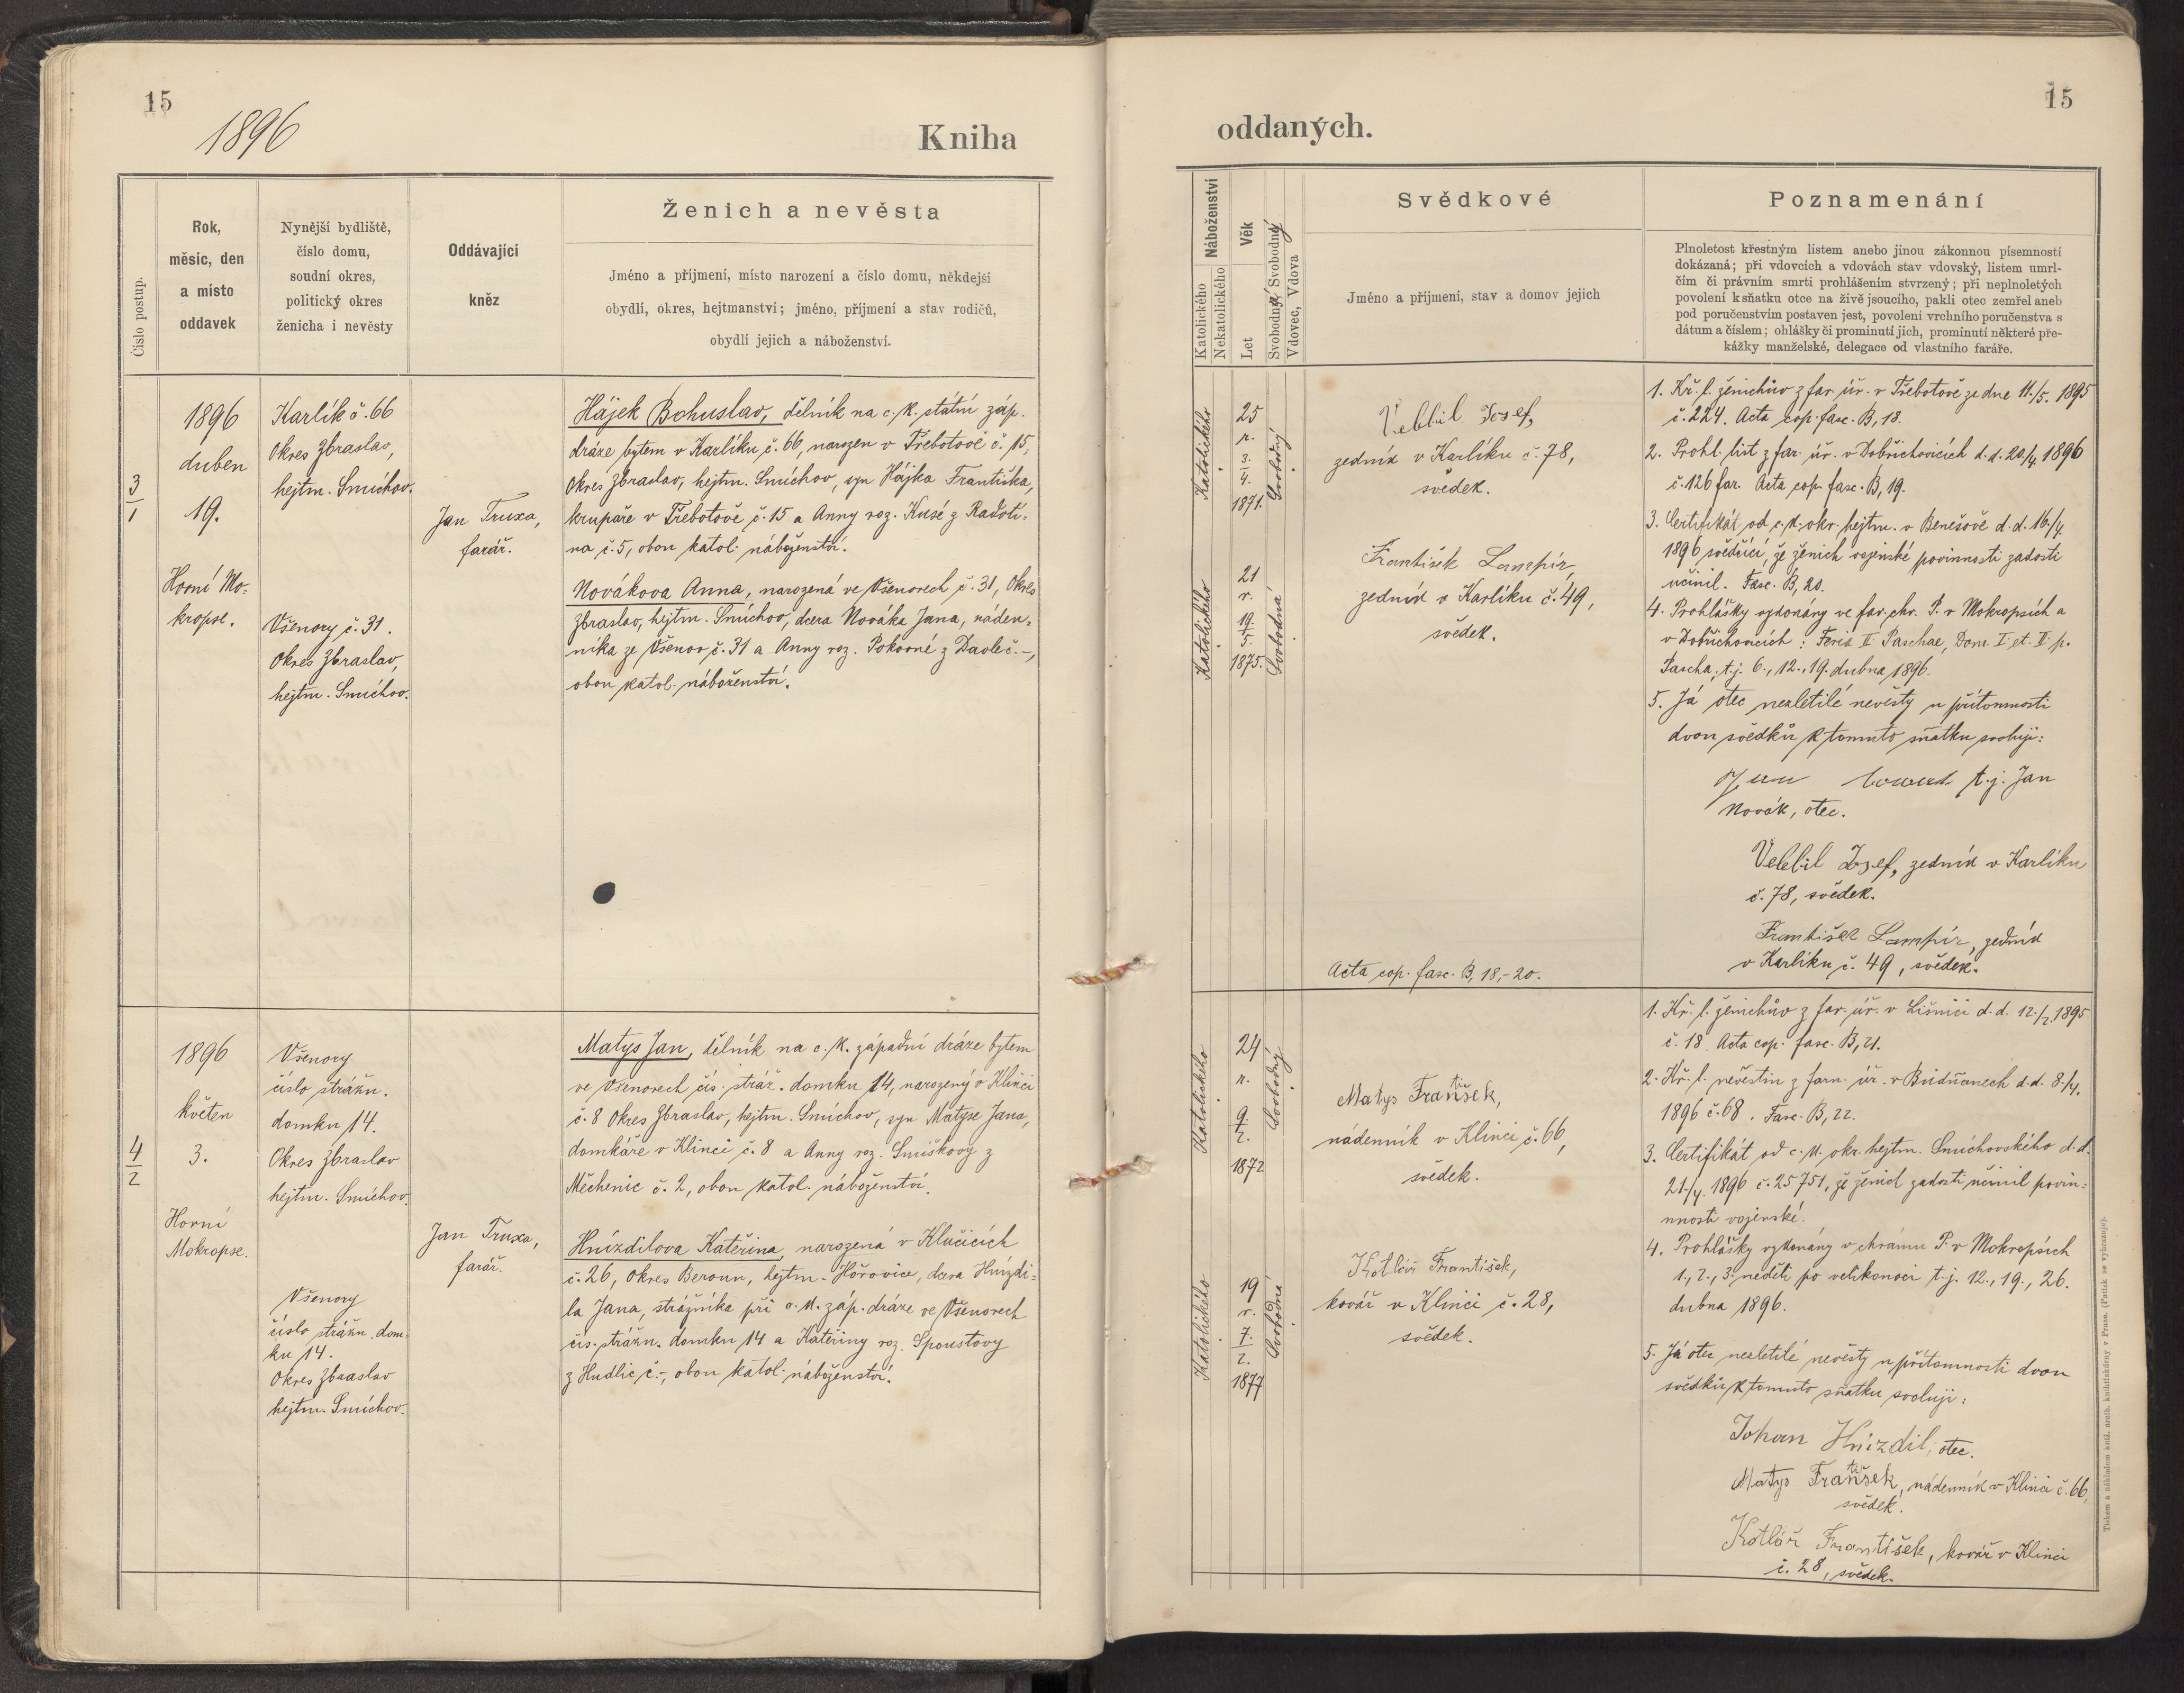 15
1896
Kniha
Číslo postup.
Rok,
měsíc, den
a místo
oddavek
Nynější bydliště,
číslo domu,
soudní okres,
politický okres
ženicha i nevěsty
Oddávající
kněz
Ženich a nevěsta
Jméno a příjmení, místo narození a číslo domu, někdejší
obydlí, okres, hejtmanství; jméno, příjmení a stav rodičů,
obydlí jejich a náboženství.
3
1
1896
duben
19.
Horní Mo-
kropse.
Karlík č. 66
Okres Zbraslav,
hejtm. Smíchov.
Všenory č. 31.
Okres Zbraslav,
hejtm. Smíchov.
Jan Truxa,
farář.
Hájek Bohuslav, dělník na c. k. státní záp.
dráze bytem v Karlíku č. 66, narozen v Třebotově č. 15,
Okres Zbraslav, hejtm. Smíchov, syn Hájka Františka,
krupaře v Třebotově č. 15 a Anny roz. Kusé z Radotí-
na č. 5, obou katol. náboženství.
Novákova Anna, narozená ve Všenorech č. 31, Okres
Zbraslav, hejtm. Smíchov, dcera Nováka Jana, náden-
níka ze Všenor č. 31 a Anny roz. Pokorné z Davle č. -,
obou katol. náboženství.
4
2
1896
květen
3.
Horní
Mokropse.
Všenory
číslo strážn.
domku 14.
Okres Zbraslav
hejtm. Smíchov.
Všenory
číslo strážn. dom-
ku 14.
Okres Zbraslav
hejtm. Smíchov.
Jan Truxa,
farář.
Matys Jan, dělník na c. k. západní dráze bytem
ve Všenorech čís. stráž. domku 14, narozený v Klínci
č. 8 Okres Zbraslav, hejtm. Smíchov, syn Matyse Jana,
domkáře v Klínci č. 8 a Anny roz. Smíškovy z
Měchenic č. 2, obou katol. náboženství.
Hnízdilova Kateřina, narozená v Klučicích
č. 26, Okres Beroun, hejtm. Hořovice, dcera Hnízdi-
la Jana, strážníka při c. k. záp. dráze ve Všenorech
čís. strážn. domku 14 a Kateřiny roz. Spoustovy
z Hudlic č. -, obou katol. náboženství.
oddaných.
15
Náboženství
Katolického
Nekatolického
Věk
Let
Svobodný, Svobodná
Vdovec, Vdova
Svědkové
Jméno a příjmení, stav a domov jejich
Poznamenání
Plnoletost křestným listem anebo jinou zákonnou písemností
dokázaná; při vdovcích a vdovách stav vdovský, listem umrl-
čím či právním smrti prohlášením stvrzený; při neplnoletých
povolení k sňatku otce na živě jsoucího, pakli otec zemřel aneb
pod poručenstvím postaven jest, povolení vrchního poručenstva s
dátum a číslem; ohlášky či prominutí jich, prominutí některé pře-
kážky manželské, delegace od vlastního faráře.
Katolického
25
r.
3.
4.
1871.
Svobodný
Katolického
21
r.
19.
5.
1875.
Svobodná
Veklbil Josef,
zedník v Karlíku č. 78,
svědek.
František Lampír
zedník v Karlíku č. 49,
svědek.
Acta cop. fasc. B, 18.-20.
1. Kř. l. ženichův z far. úř. v Třebotově ze dne 11./5. 1895
č. 224. Acta cop. fasc. B, 18.
2. Prohl. list z far. úř. v Dobřichovicích d. d. 20./4 1896
č. 126 far. Acta cop. fasc. B, 19.
3. Certifikát od c. k. okr. hejtm. v Benešově d. d. 16./4.
1896 svědčící, že ženich vojenské povinnosti zadosti
učinil. Fasc. B, 20.
4. Prohlášky vykonány ve far. chr. P. v Mokropsích a
v Dobřichovicích: Feria II Paschae, Dom. I. et. II. p.
Pascha, t. j. 6., 12., 19. dubna 1896.
5. Já otec nezletilé nevěsty u přítomnosti
dvou svědků k tomuto sňatku svoluji:
t. j. Jan
Novák, otec.
Veklbil Josef, zedník v Karlíku
č. 78, svědek.
František Lampír, zedník
v Karlíku č. 49, svědek.
Katolického
24
r.
9.
2.
1872
Svobodný
Katolického
19
r.
7.
2.
1877
Svobodná
Matys František,
nádenník v Klínci č. 66,
svědek.
Kotlář František,
kovář v Klínci č. 28,
svědek.
1. Kř. l. ženichův z far. úř. v Líšnici d. d. 12./2. 1895
č. 18. Acta cop. fasc. B, 21.
2. Kř. l. nevěstin z farn. úř. v d. d. 8./4.
1896 č. 68. Fasc. B, 22.
3. Certifikát od c. k. okr. hejtm. Smíchovského d. d.
21./4. 1896 č. 25751, že ženich zadosti učinil povin-
nnosti vojenské.
4. Prohlášky vykonány v chrámu P. v Mokropsích
1., 2., 3. neděli po velikonoci t. j. 12., 19., 26.
dubna 1896.
5. Já otec nezletilé nevěsty u přítomnosti dvou
svědků k tomuto sňatku svoluji:
Johan Hnízdil, otec.
Matys František, nádenník v Klínci č. 66,
svědek.
Kotlář František, kovář v Klínci
č. 28, svědek.
Tiskem a nákladem kníž. arcib. knihtiskárny v Praze. (Patisk se vyhrazuje).